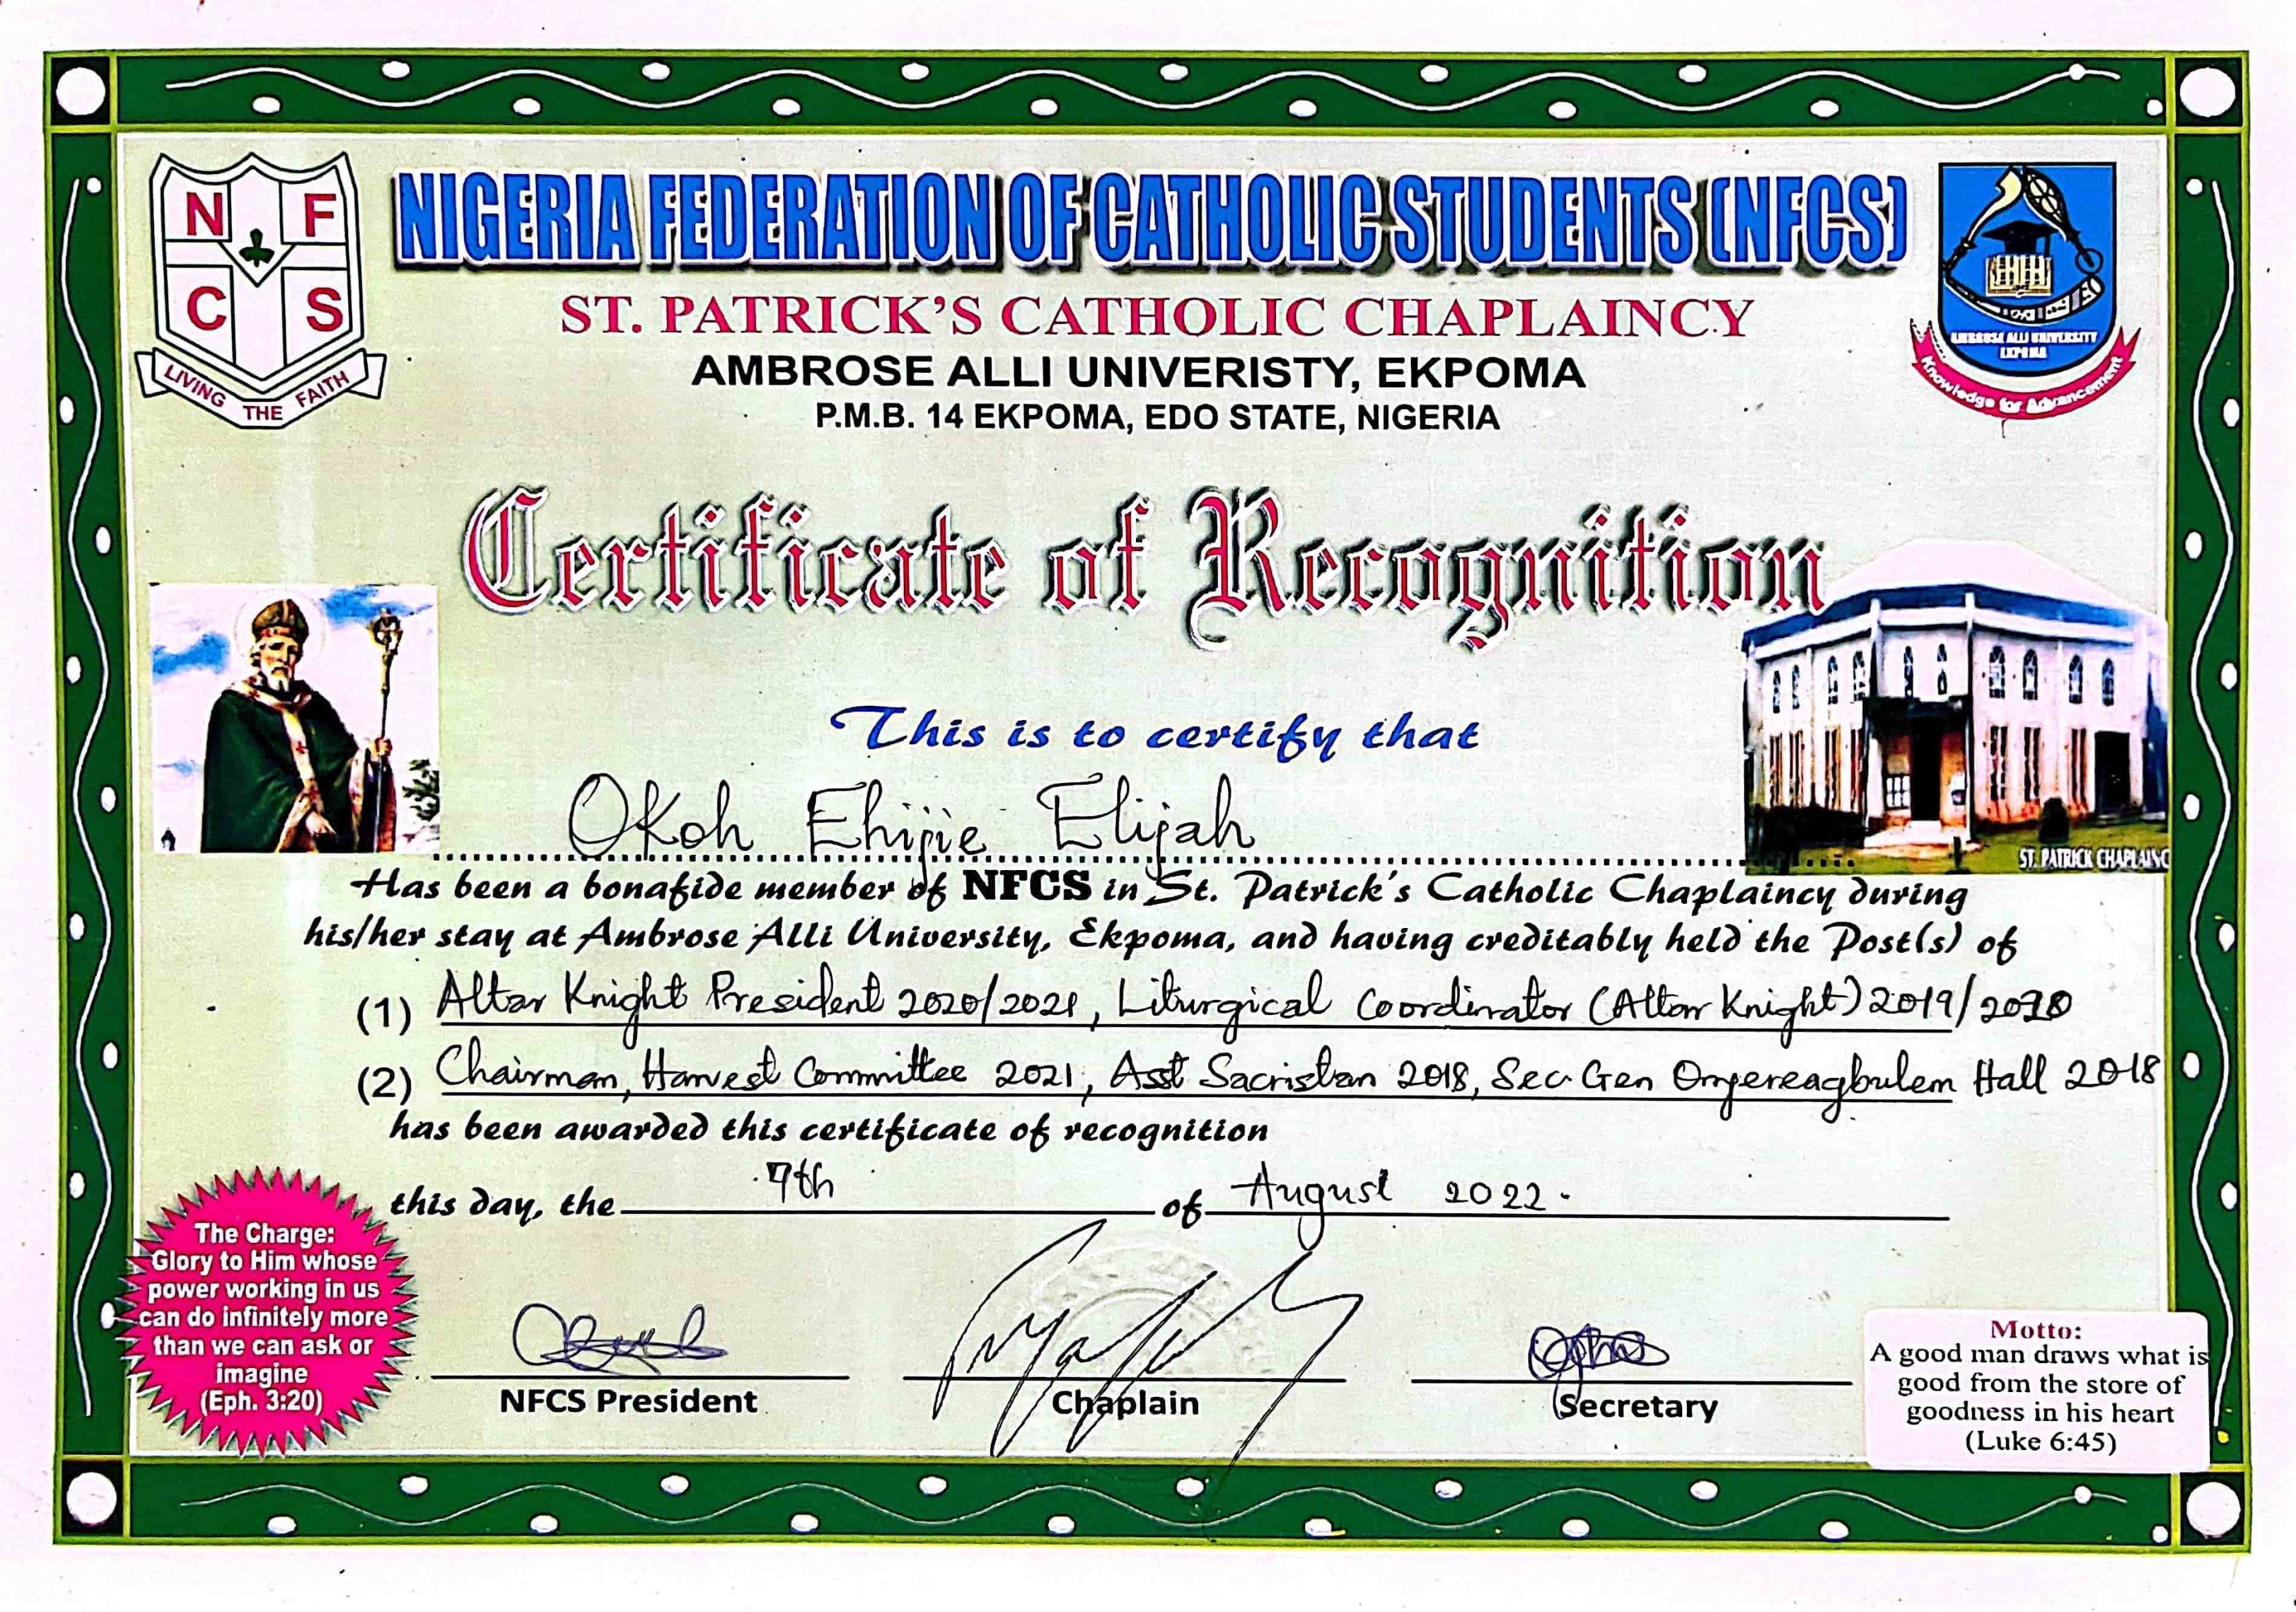 NIGERIA FEDERATION OF CATHOLIC STUDENTS (NFCS)
ST. PATRICK'S CATHOLIC CHAPLAINCY
AMBROSE ALLI UNIVERISTY, EKPOMA
P.M.B. 14 EKPOMA, EDO STATE, NIGERIA
N F
C S
LIVING THE FAITH
AMBROSE ALLI UNIVERSITY
EKPOMA
Knowledge for Advancement
Certificate of Recognition
This is to certify that
Okoh Ehijie Elijah
ST. PATRICK CHAPLAINC
Has been a bonafide member of NFCS in St. Patrick's Catholic Chaplaincy during
his/her stay at Ambrose Alli University, Ekpoma, and having creditably held the Post(s) of
(1) Altar Knight President 2020/2021, Liturgical Coordinator (Altar Knight) 2019/
(2) Chairman, Harvest Committee 2021, Asst Sacristan 2018, Sec Gen Hall 2018
has been awarded this certificate of recognition
this day, the 7th of August 2022.
The Charge:
Glory to Him whose
power working in us
can do infinitely more
than we can ask or
imagine
(Eph. 3:20)
NFCS President
Chaplain
Secretary
Motto:
A good man draws what is
good from the store of
goodness in his heart
(Luke 6:45)